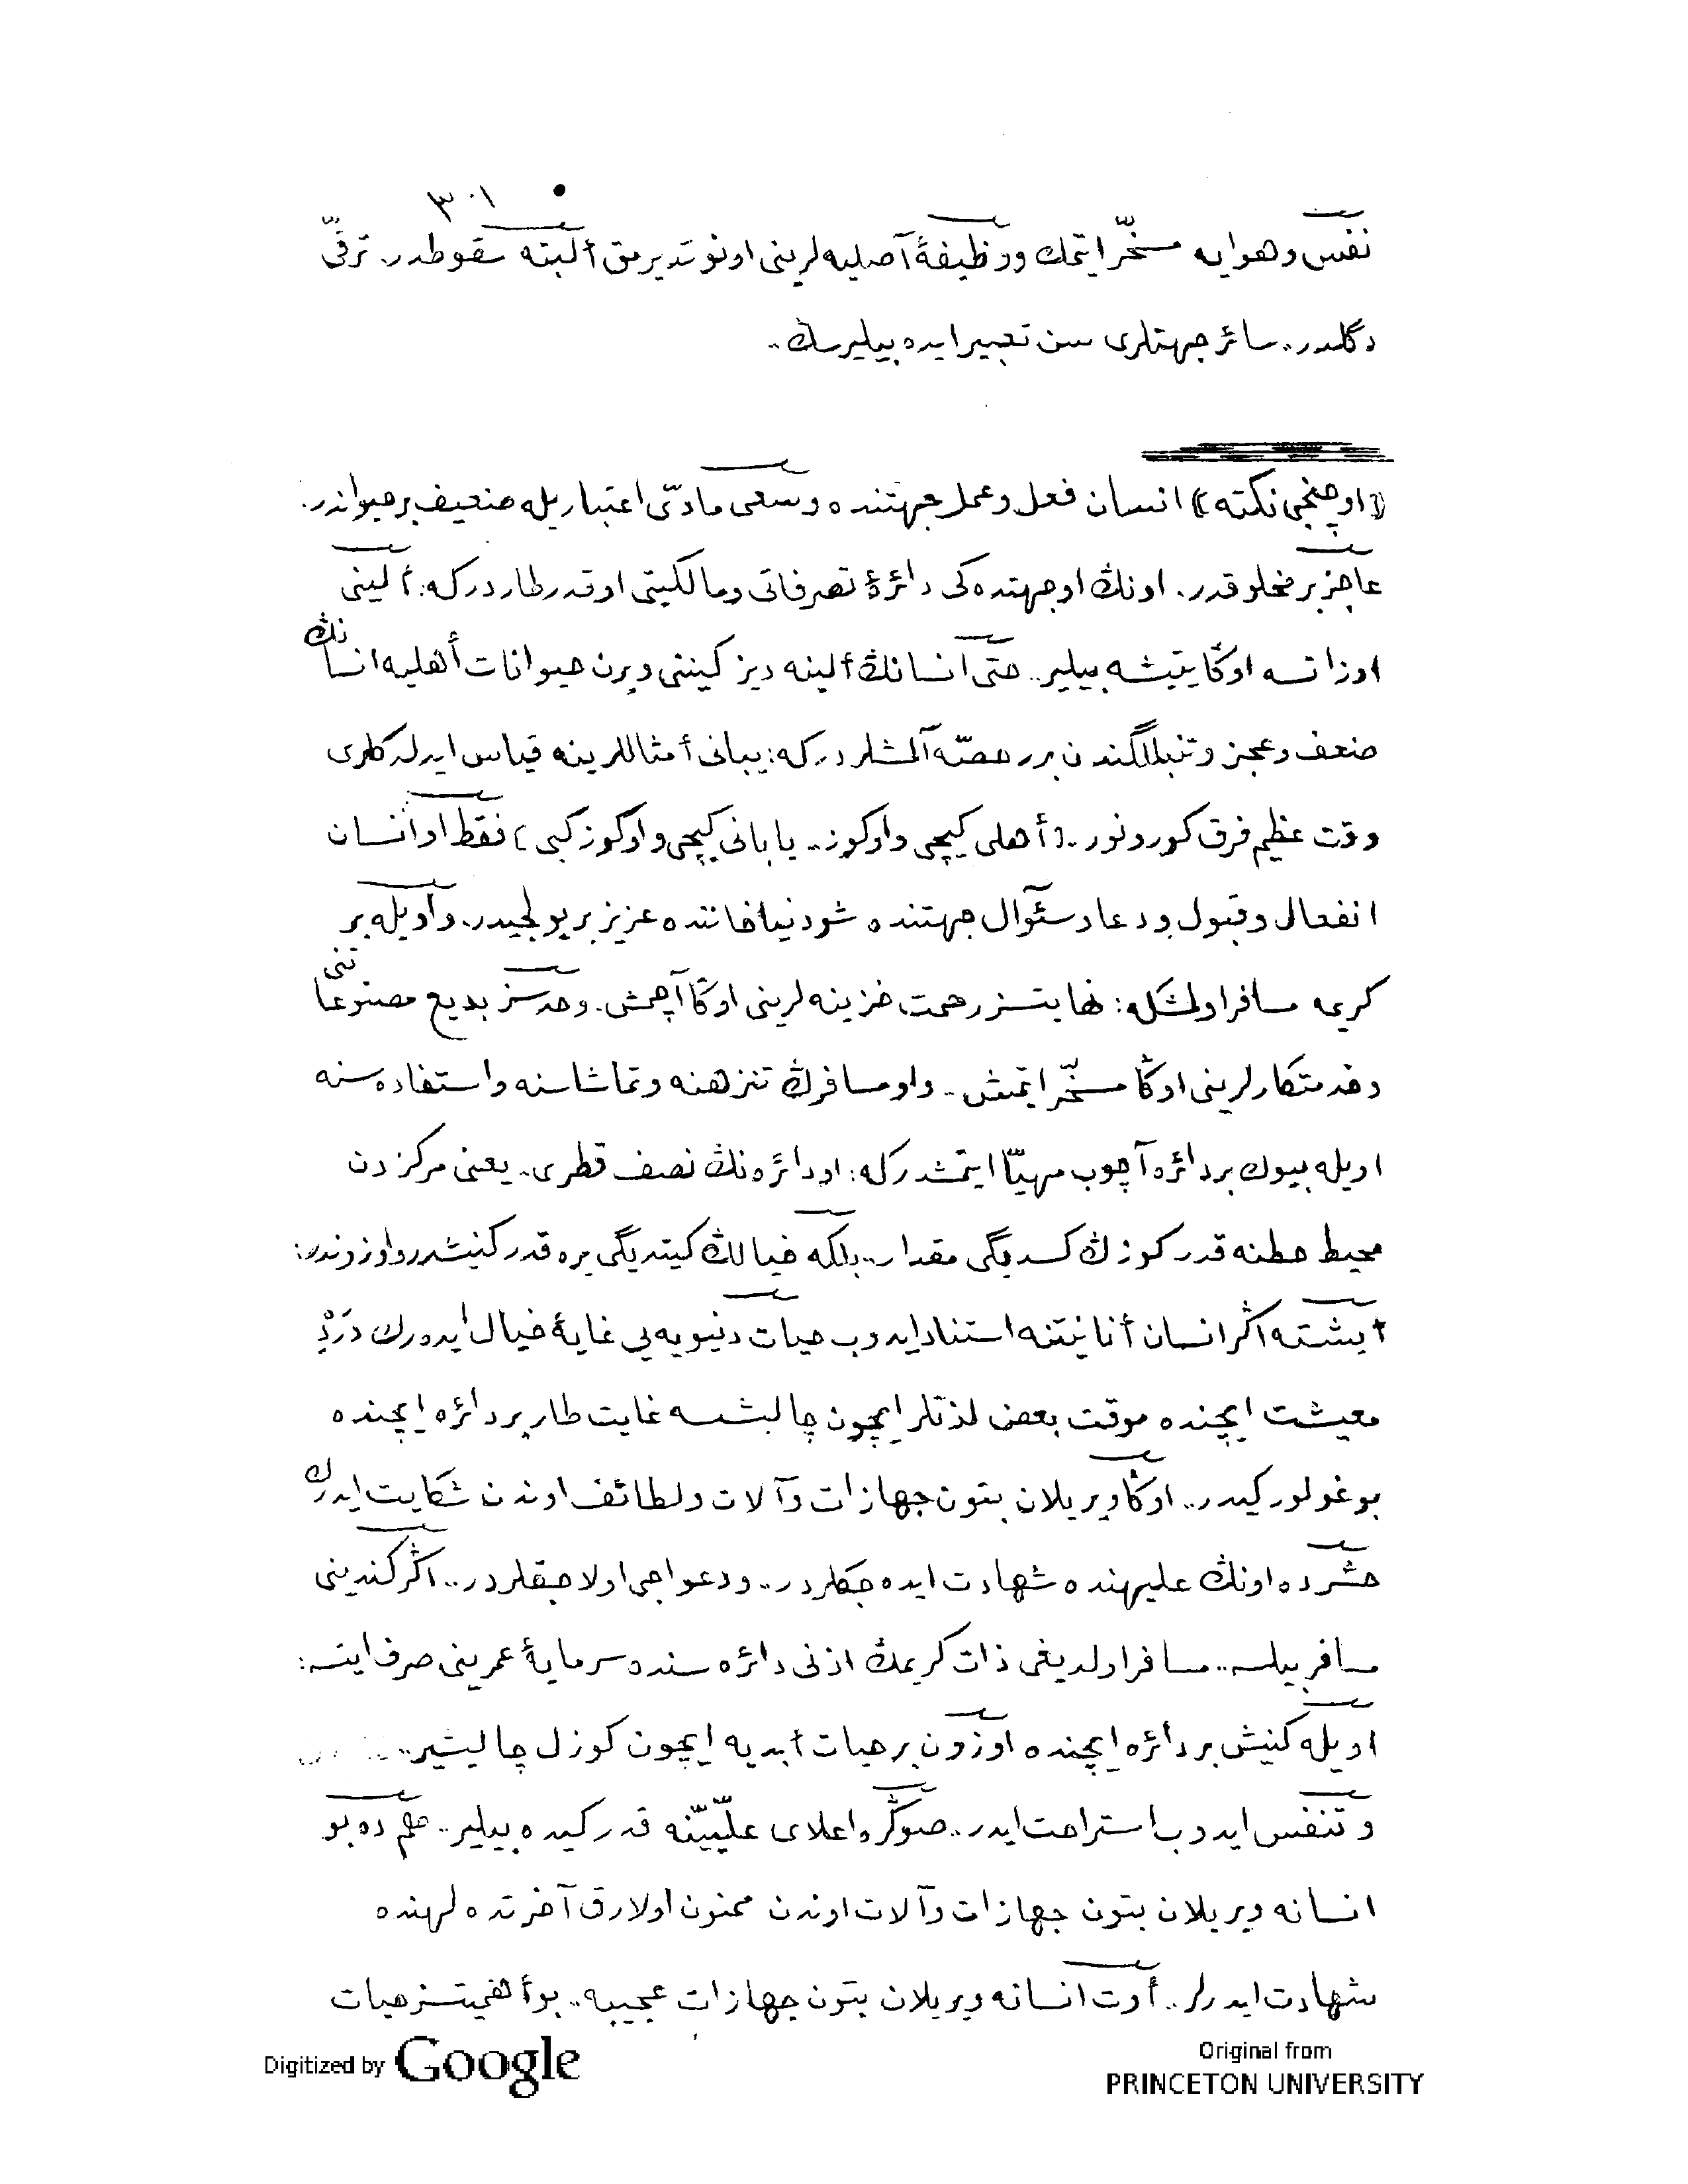 ٣٠١
نفس وهوايه مسخّر ايتمك ووظيفۀ أصليه لرينى اونوتديرمق ألبته سقوطدر. ترقّى
دگلدر.. سائر جهتلرى سن تعبير ايده بيليرسڭ..
﴿اوچنجى نكته﴾ انسان فعل وعمل جهتنده وسعى مادّى اعتباريله ضعيف بر حيواندر.
عاجز بر مخلوقدر. اونڭ اوجهتده كى دائرۀ تصرفاتى ومالكيتى اوقدر طاردركه: ألينى
اوزاتسه اوڭا يتيشه بيلير.. حتّى انسانڭ ألينه ديزكيننى ويرن حيوانات أهليه انسانڭ
ضعف وعجز وتنبللگندن برر حصّه آلمشلردركه: يبانى أمثاللرينه قياس ايدلدكلرى
وقت عظيم فرق كورونور.. (أهلى كيچى واوكوز.. يابانى كيچى واوكوز كبى) فقط او انسان
انفعال وقبول ودعا وسئوال جهتنده شو دنيا خاننده عزيز بر يولجيدر. و اويله بر
كريمه مسافر اولمشكه: نهايتسز رحمت خزينه لرينى اوڭا آچمش. وحدسز بديع مصنوعاتنى
وخدمتكارلرينى اوڭا مسخّر ايتمش.. واو مسافرڭ تنزهنه وتماشاسنه واستفاده سنه
اويله بيوك بر دائره آچوب مهيّا ايتمشدركه: او دائره نڭ نصف قطرى.. يعنى مركزدن
محيط خطنه قدر كوزڭ كسديگى مقدار.. بلكه خيالڭ كيتديگى يره قدر كنيشدر واوزوندر:
ايشته اگر انسان أنانيتنه استناد ايدوب حيات دنيويه يى غايۀ خيال ايدەرك دَرْدِ
معيشت ايچنده موقت بعض لذتلر ايچون چاليشسه غايت طار بر دائره ايچنده
بوغولور كيدر.. اوڭا ويريلان بتون جهازات وآلات ولطائف اوندن شكايت ايدرك
حشرده اونڭ عليهنده شهادت ايده جكلردر.. ودعواجى اولاجقلردر.. اگر كندينى
مسافر بيلسه.. مسافر اولديغى ذات كريمڭ اذنى دائره سنده سرمايۀ عمرينى صرف ايتسه:
اويله كنيش بر دائره ايچنده اوزون بر حيات أبديه ايچون كوزل چاليشير..
وتنفّس ايدوب استراحت ايدر.. صوڭره اعلاى علّيّينه قدر كيده بيلير.. هم ده بو
انسانه ويريلان بتون جهازات وآلات اوندن ممنون اولارق آخرتده لهنده
شهادت ايدرلر.. أوت انسانه ويريلان بتون جهازات عجيبه.. بو أهميتسز حيات
Digitized by Google
Original from
PRINCETON UNIVERSITY